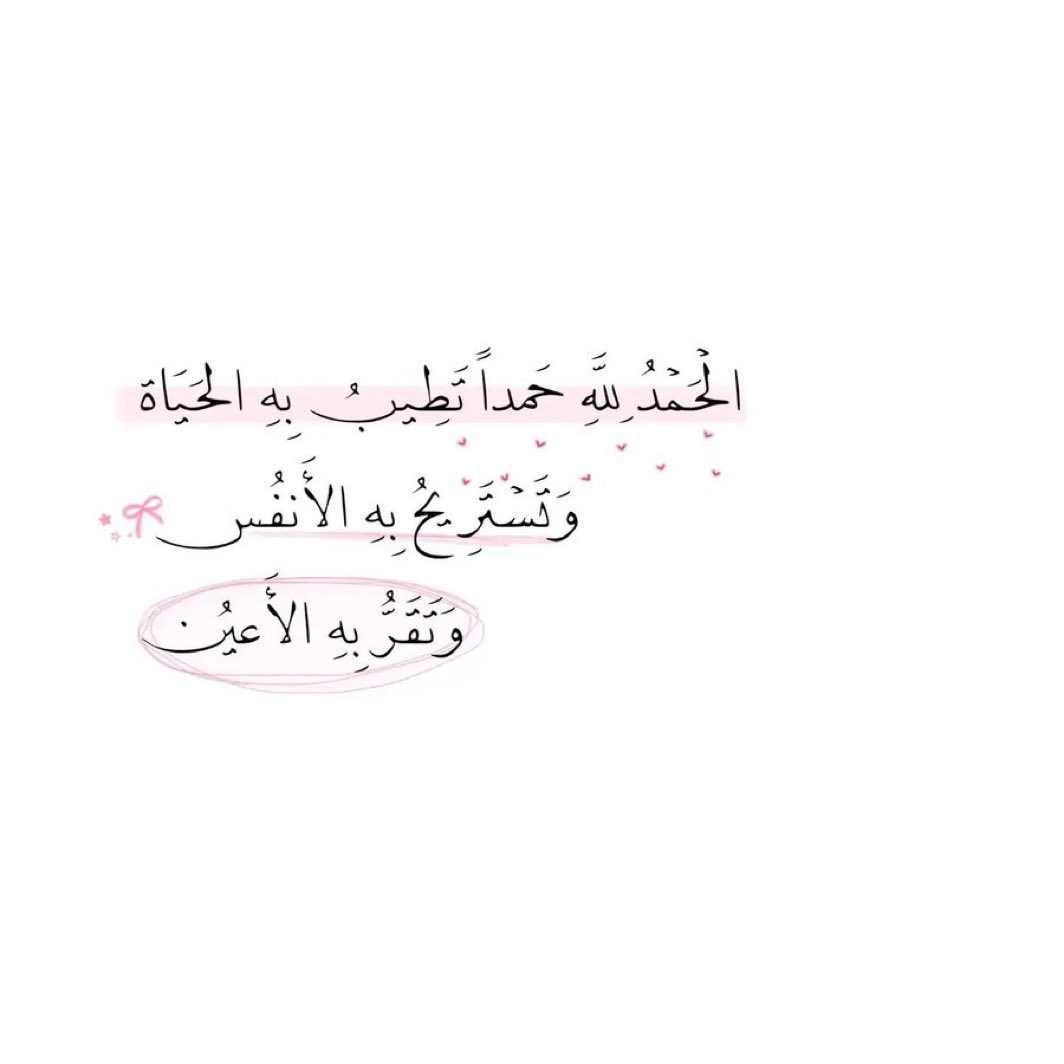 الْحَمْدُ لِلَّهِ حَمداً تَطِيبُ بِهِ الحَيَاة
وَتَسْتَرِيحُ بِهِ الأَنفُس
وَتَقَرُّ بِهِ الأَعيُن